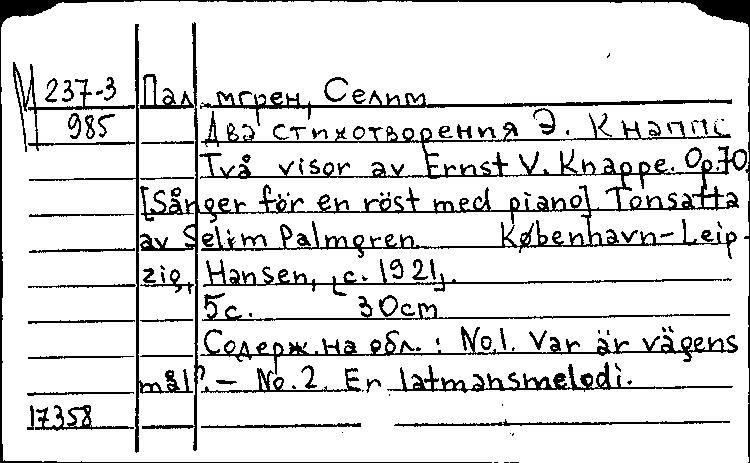 М 237-3 Палмгрен, Селим
985 Два стихотворения Э. Кнаппе
Två visor av Ernst V. Knappe. Op.70.
[Sånger för en röst med piano]. Tonsatta
av Selim Palmgren København-Leip-
zig, Hansen, [c. 1921].
5c. 30cm
Содерж. на обл.: No.1. Var är vägens
mål?. - No. 2. En latmansmelodi.
17358